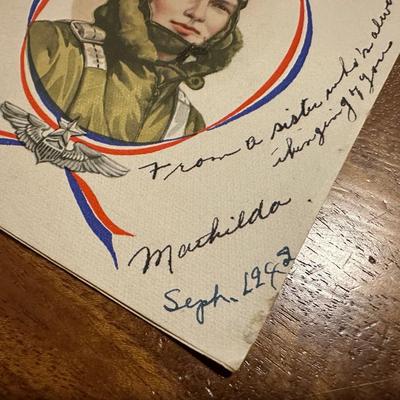 From a sister who's alwa
thinging of you
Mathilda.
Seph. 1942